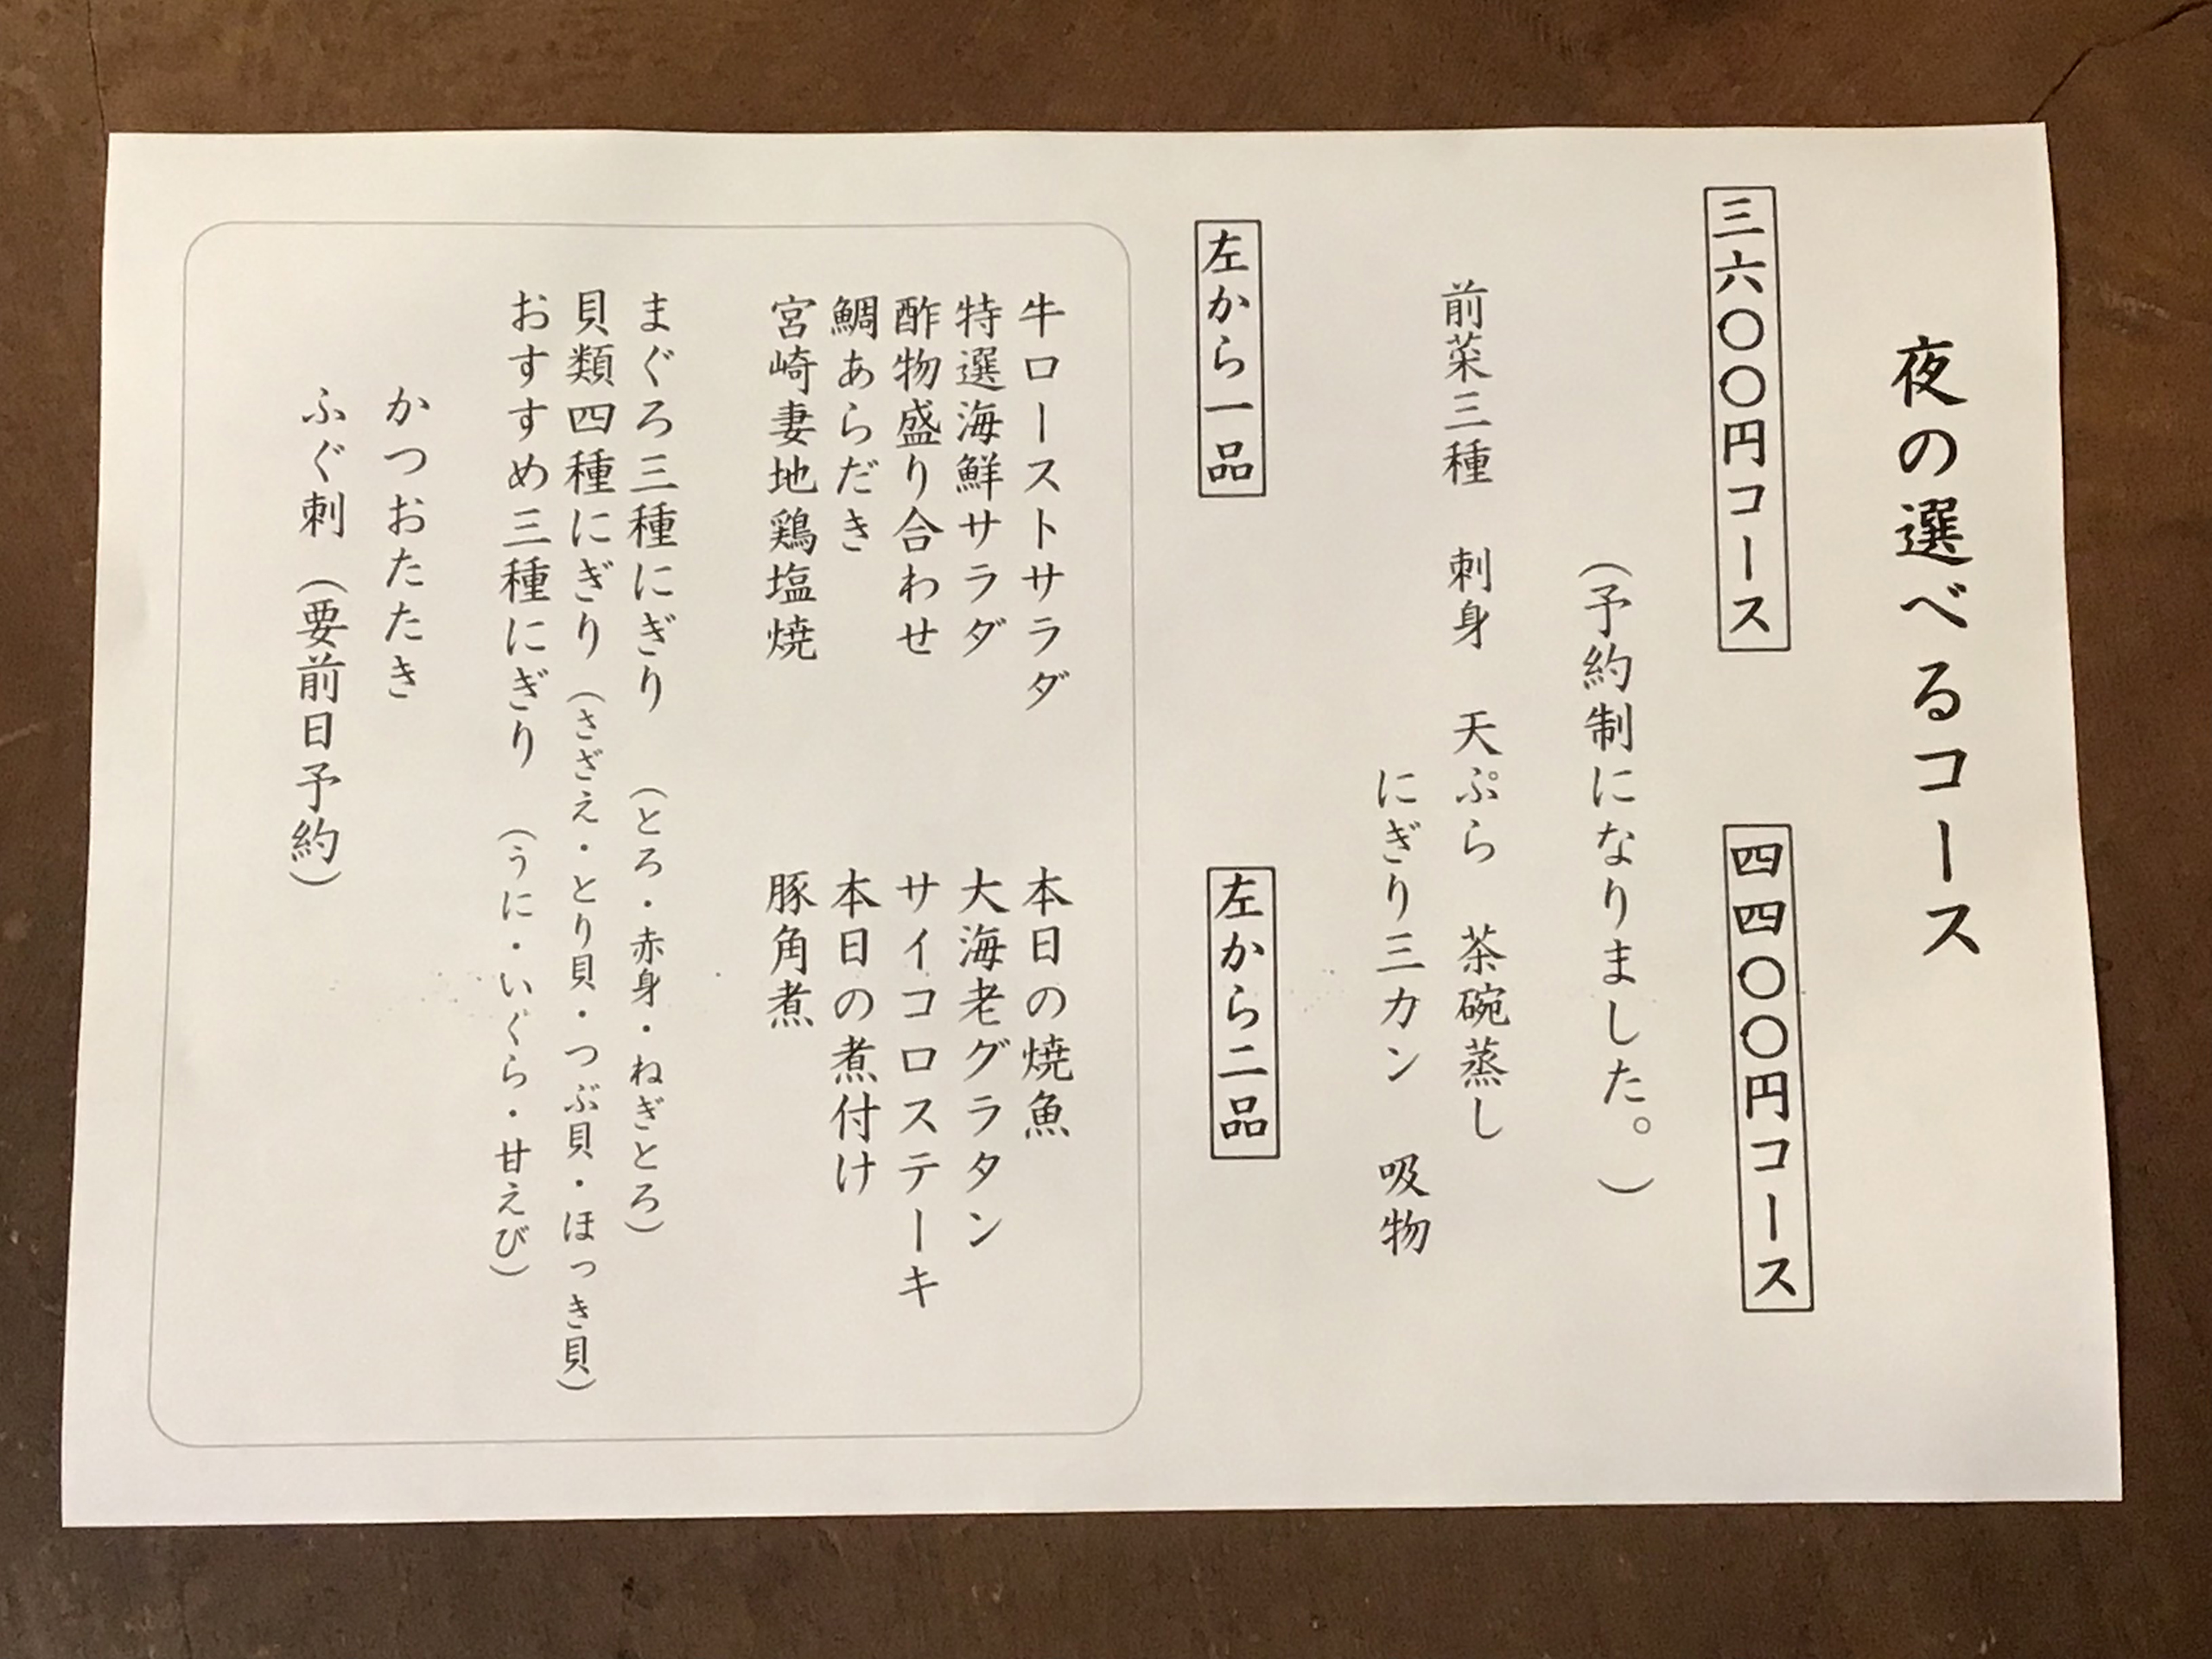 夜の選べるコース
三六〇〇円コース
四四〇〇円コース
(予約制になりました。)
前菜三種 刺身 天ぷら 茶碗蒸し
にぎり三カン 吸物
左から一品
左から二品
牛ローストサラダ
特選海鮮サラダ
酢物盛り合わせ
鯛あらだき
宮崎妻地鶏塩焼
本日の焼魚
大海老グラタン
サイコロステーキ
本日の煮付け
豚角煮
まぐろ三種にぎり (とろ・赤身・ねぎとろ)
貝類四種にぎり (さざえ・とり貝・つぶ貝・ほっき貝)
おすすめ三種にぎり (うに・いくら・甘えび)
かつおたたき
ふぐ刺 (要前日予約)